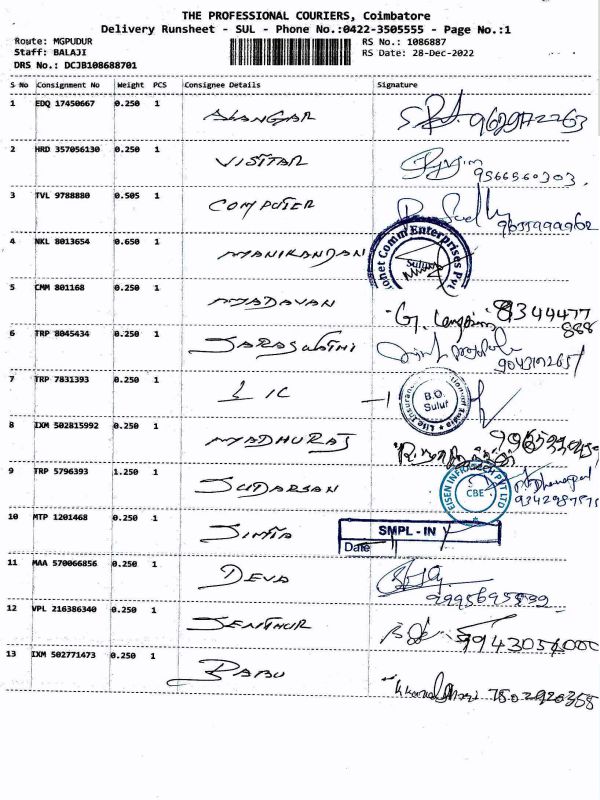 THE PROFESSIONAL COURIERS, Coimbatore
Delivery Runsheet - SUL - Phone No.:0422-3505555 - Page No.:1
Route: MGPUDUR RS No.: 1086887
Staff: BALAJI RS Date: 28-Dec-2022
DRS No.: DCJB108688701
S No Consignment No Weight PCS Consignee Details Signature
1 EDQ 17450667 0.250 1 ALANGAR 9629172263
2 HRD 357056130 0.250 1 VISITAR 9566560303
3 TVL 9788880 0.505 1 COMPUTER
4 NKL 8013654 0.650 1 MANIKANDAN
Comm Enterprises Pvt
Sulur
5 CMM 801168 0.250 1 MADAVAN 9344477
888
6 TRP 8045434 0.250 1 SARASWATHI
7 TRP 7831393 0.250 1 LIC
B.O.
Sulur
8 IXM 502815992 0.250 1 MADHURAJ
9 TRP 5796393 1.250 1 SUDARSAN
EISEN INFRATECH PVT LTD
CBE
10 MTP 1201468 0.250 1
SMPL - IN
Date
11 MAA 570066856 0.250 1 DEVA 9995695899
12 VPL 216386340 0.250 1 SENTHUR
13 IXM 502771473 0.250 1 BABU 7502920358